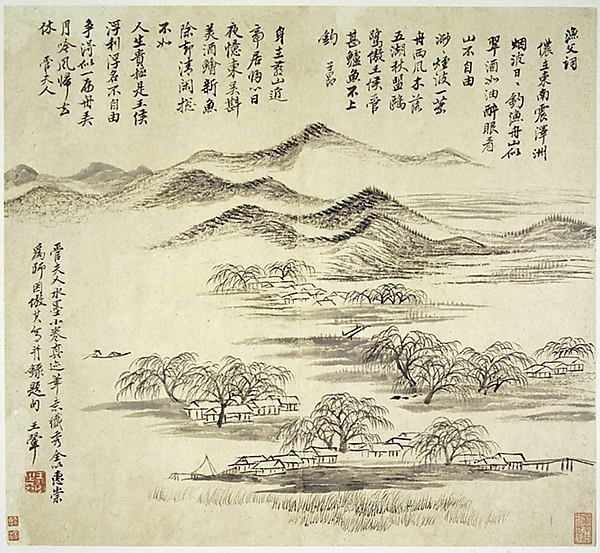 漁父詞
儂在東南震澤洲
烟波日日釣漁舟山似
翠酒如油醉眼看
山不自由
渺渺烟波一葉
舟西風木落
五湖秋盟鷗
鷺傲王侯管
甚鱸魚不上
鈎 子昂
身在燕山近
帝居歸心日
夜憶東吳斟
美酒鱠新魚
除却清閒捴
不如
人生貴極是王侯
浮利浮名不自由
爭得似一扁舟弄
月吟風歸去
休 管夫人
管夫人水墨小卷真迹筆意纖秀全以惠崇
為師因倣其寫并錄題句 王翬